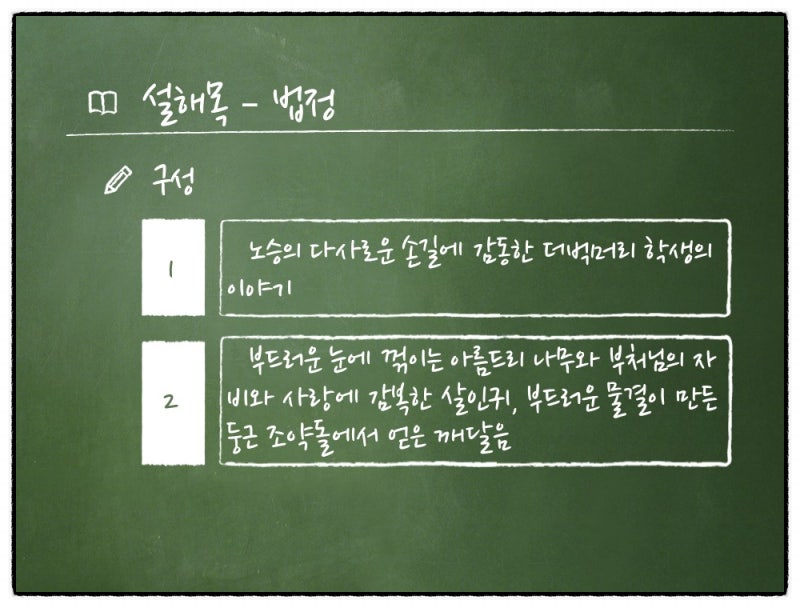 설해목 - 법정
구성
1
노승의 다사로운 손길에 감동한 더벅머리 학생의
이야기
2
부드러운 눈에 꺾이는 아름드리 나무와 부처님의 자
비와 사랑에 감복한 살인귀, 부드러운 물결이 만든
둥근 조약돌에서 얻은 깨달음